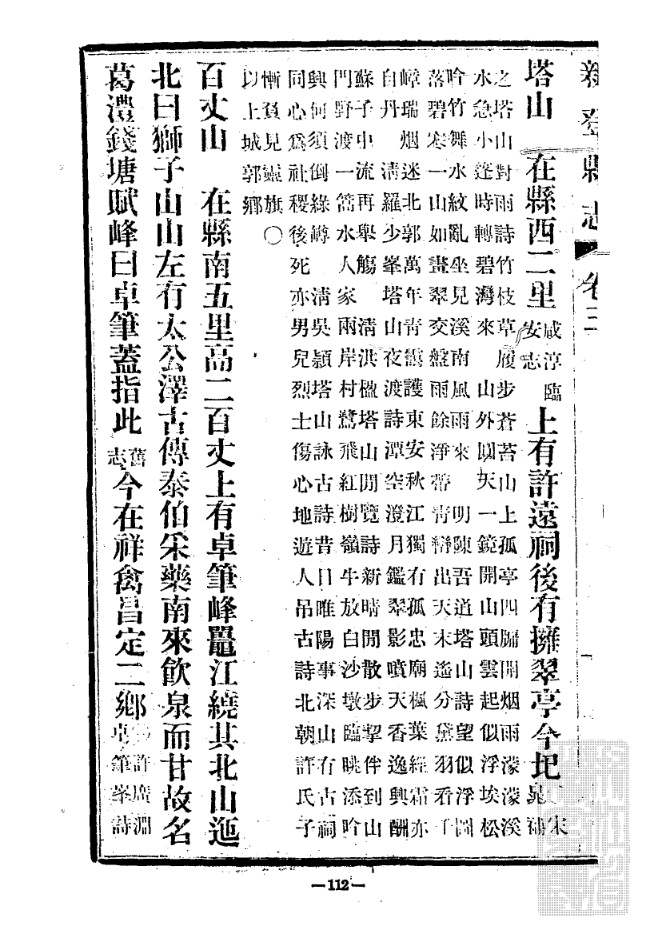 新登縣志 卷三
塔山 在縣西二里 咸淳臨安志 上有許遠祠後有擁翠亭今圮 宋晁補
之塔山對雨詩竹枝草履步蒼苔山上孤亭四牖開烟雨濛濛溪
水急小篷時轉碧灣來 山外圓天一鏡開山頭雲起似浮埃松
吟竹舞水紋亂坐見溪南風雨來 明陳吾道塔山詩望似浮圖
落碧寒一山如畫翠交盤雨餘淨帶青巒出天末遙分黛羽看千
嶂瑞烟迷北郭萬年青靄護東安秋江獨有孤忠廟楓葉經霜亦
自丹 清羅少峯塔山夜渡詩潭空澄月鑑翠影噴天香逸興酬
蘇子中流再舉觴 清洪楹塔山閒覽詩新晴閒散步挈伴到山
門野渡一篙水人家兩岸村鷺飛紅樹嶺牛放白沙墩臨眺添吟
興何須倒綠罇 清吳穎塔山詠古詩昔日睢陽事深山有古祠
同心爲社稷後死亦男兒烈士傷心地遊人吊古詩北朝許氏子
慚負見靈旗○
以上城郭鄉
百丈山 在縣南五里高二百丈上有卓筆峰鼉江繞其北山迤
北曰獅子山山左有太公澤古傳泰伯采藥南來飲泉而甘故名
葛灃錢塘賦峰曰卓筆蓋指此 舊志 今在祥禽昌定二鄉 許廣淵卓筆峯詩
—112—